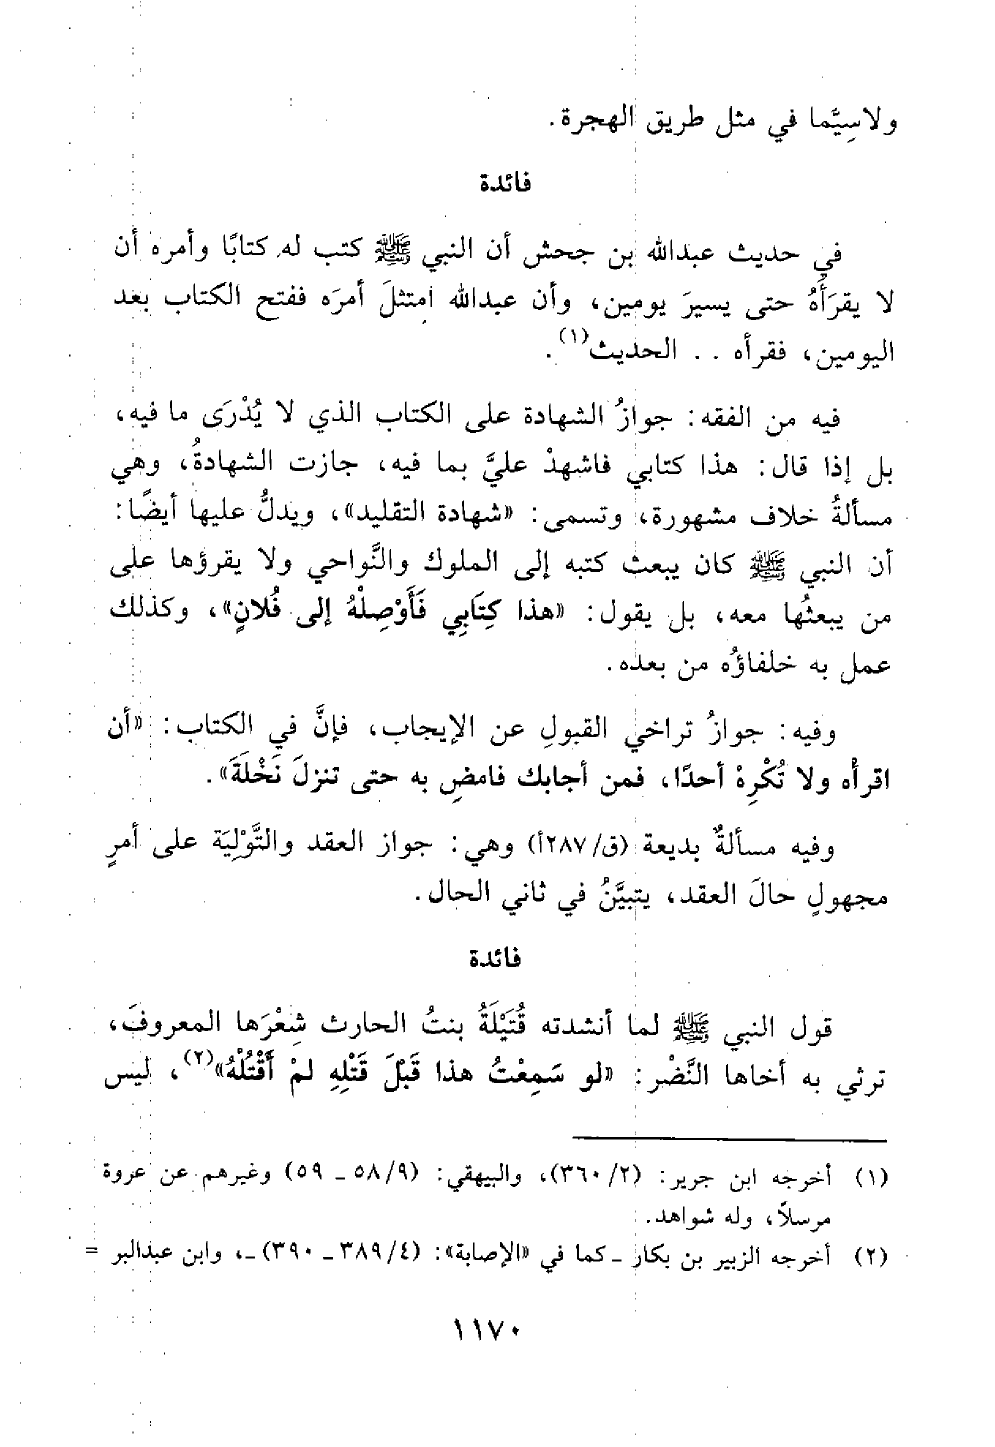 ولاسِيَّما في مثل طريق الهجرة.
فائدة
في حديث عبدالله بن جحش أن النبي ﷺ كتب له كتابًا وأمره أن
لا يقرَأَهُ حتى يسيرَ يومين، وأن عبدالله امتثلَ أمرَه ففتح الكتاب بعد
اليومين، فقرأه .. الحديث(١).
فيه من الفقه: جوازُ الشهادة على الكتاب الذي لا يُدْرَى ما فيه،
بل إذا قال: هذا كتابي فاشهدْ عليَّ بما فيه، جازت الشهادةُ، وهي
مسألةُ خلاف مشهورة، وتسمى: «شهادة التقليد»، ويدلُّ عليها أيضًا:
أن النبي ﷺ كان يبعث كتبه إلى الملوك والنَّواحي ولا يقرؤها على
من يبعثُها معه، بل يقول: «هذا كِتَابِي فَأَوْصِلْهُ إلى فُلانٍ»، وكذلك
عمل به خلفاؤُه من بعده.
وفيه: جوازُ تراخي القبولِ عن الإيجاب، فإنَّ في الكتاب: «أن
اقرأْه ولا تُكْرِهْ أحدًا، فمن أجابك فامضِ به حتى تنزلَ نَخْلَةَ».
وفيه مسألةٌ بديعة (ق/٢٨٧أ) وهي: جواز العقد والتَّوْلِيَة على أمرٍ
مجهولٍ حالَ العقد، يتبيَّنُ في ثاني الحال.
فائدة
قول النبي ﷺ لما أنشدته قُتَيْلَةُ بنتُ الحارث شِعْرَها المعروفَ،
ترثي به أخاها النَّضْر: «لو سَمِعْتُ هذا قَبْلَ قَتْلِهِ لمْ أَقْتُلْهُ»(٢)، ليس
(١) أخرجه ابن جرير: (٢/ ٣٦٠)، والبيهقي: (٩/ ٥٨ ـ ٥٩) وغيرهم عن عروة
مرسلاً، وله شواهد.
(٢) أخرجه الزبير بن بكار ـ كما في «الإصابة»: (٤/ ٣٨٩ ـ ٣٩٠) ـ، وابن عبدالبر =
١١٧٠